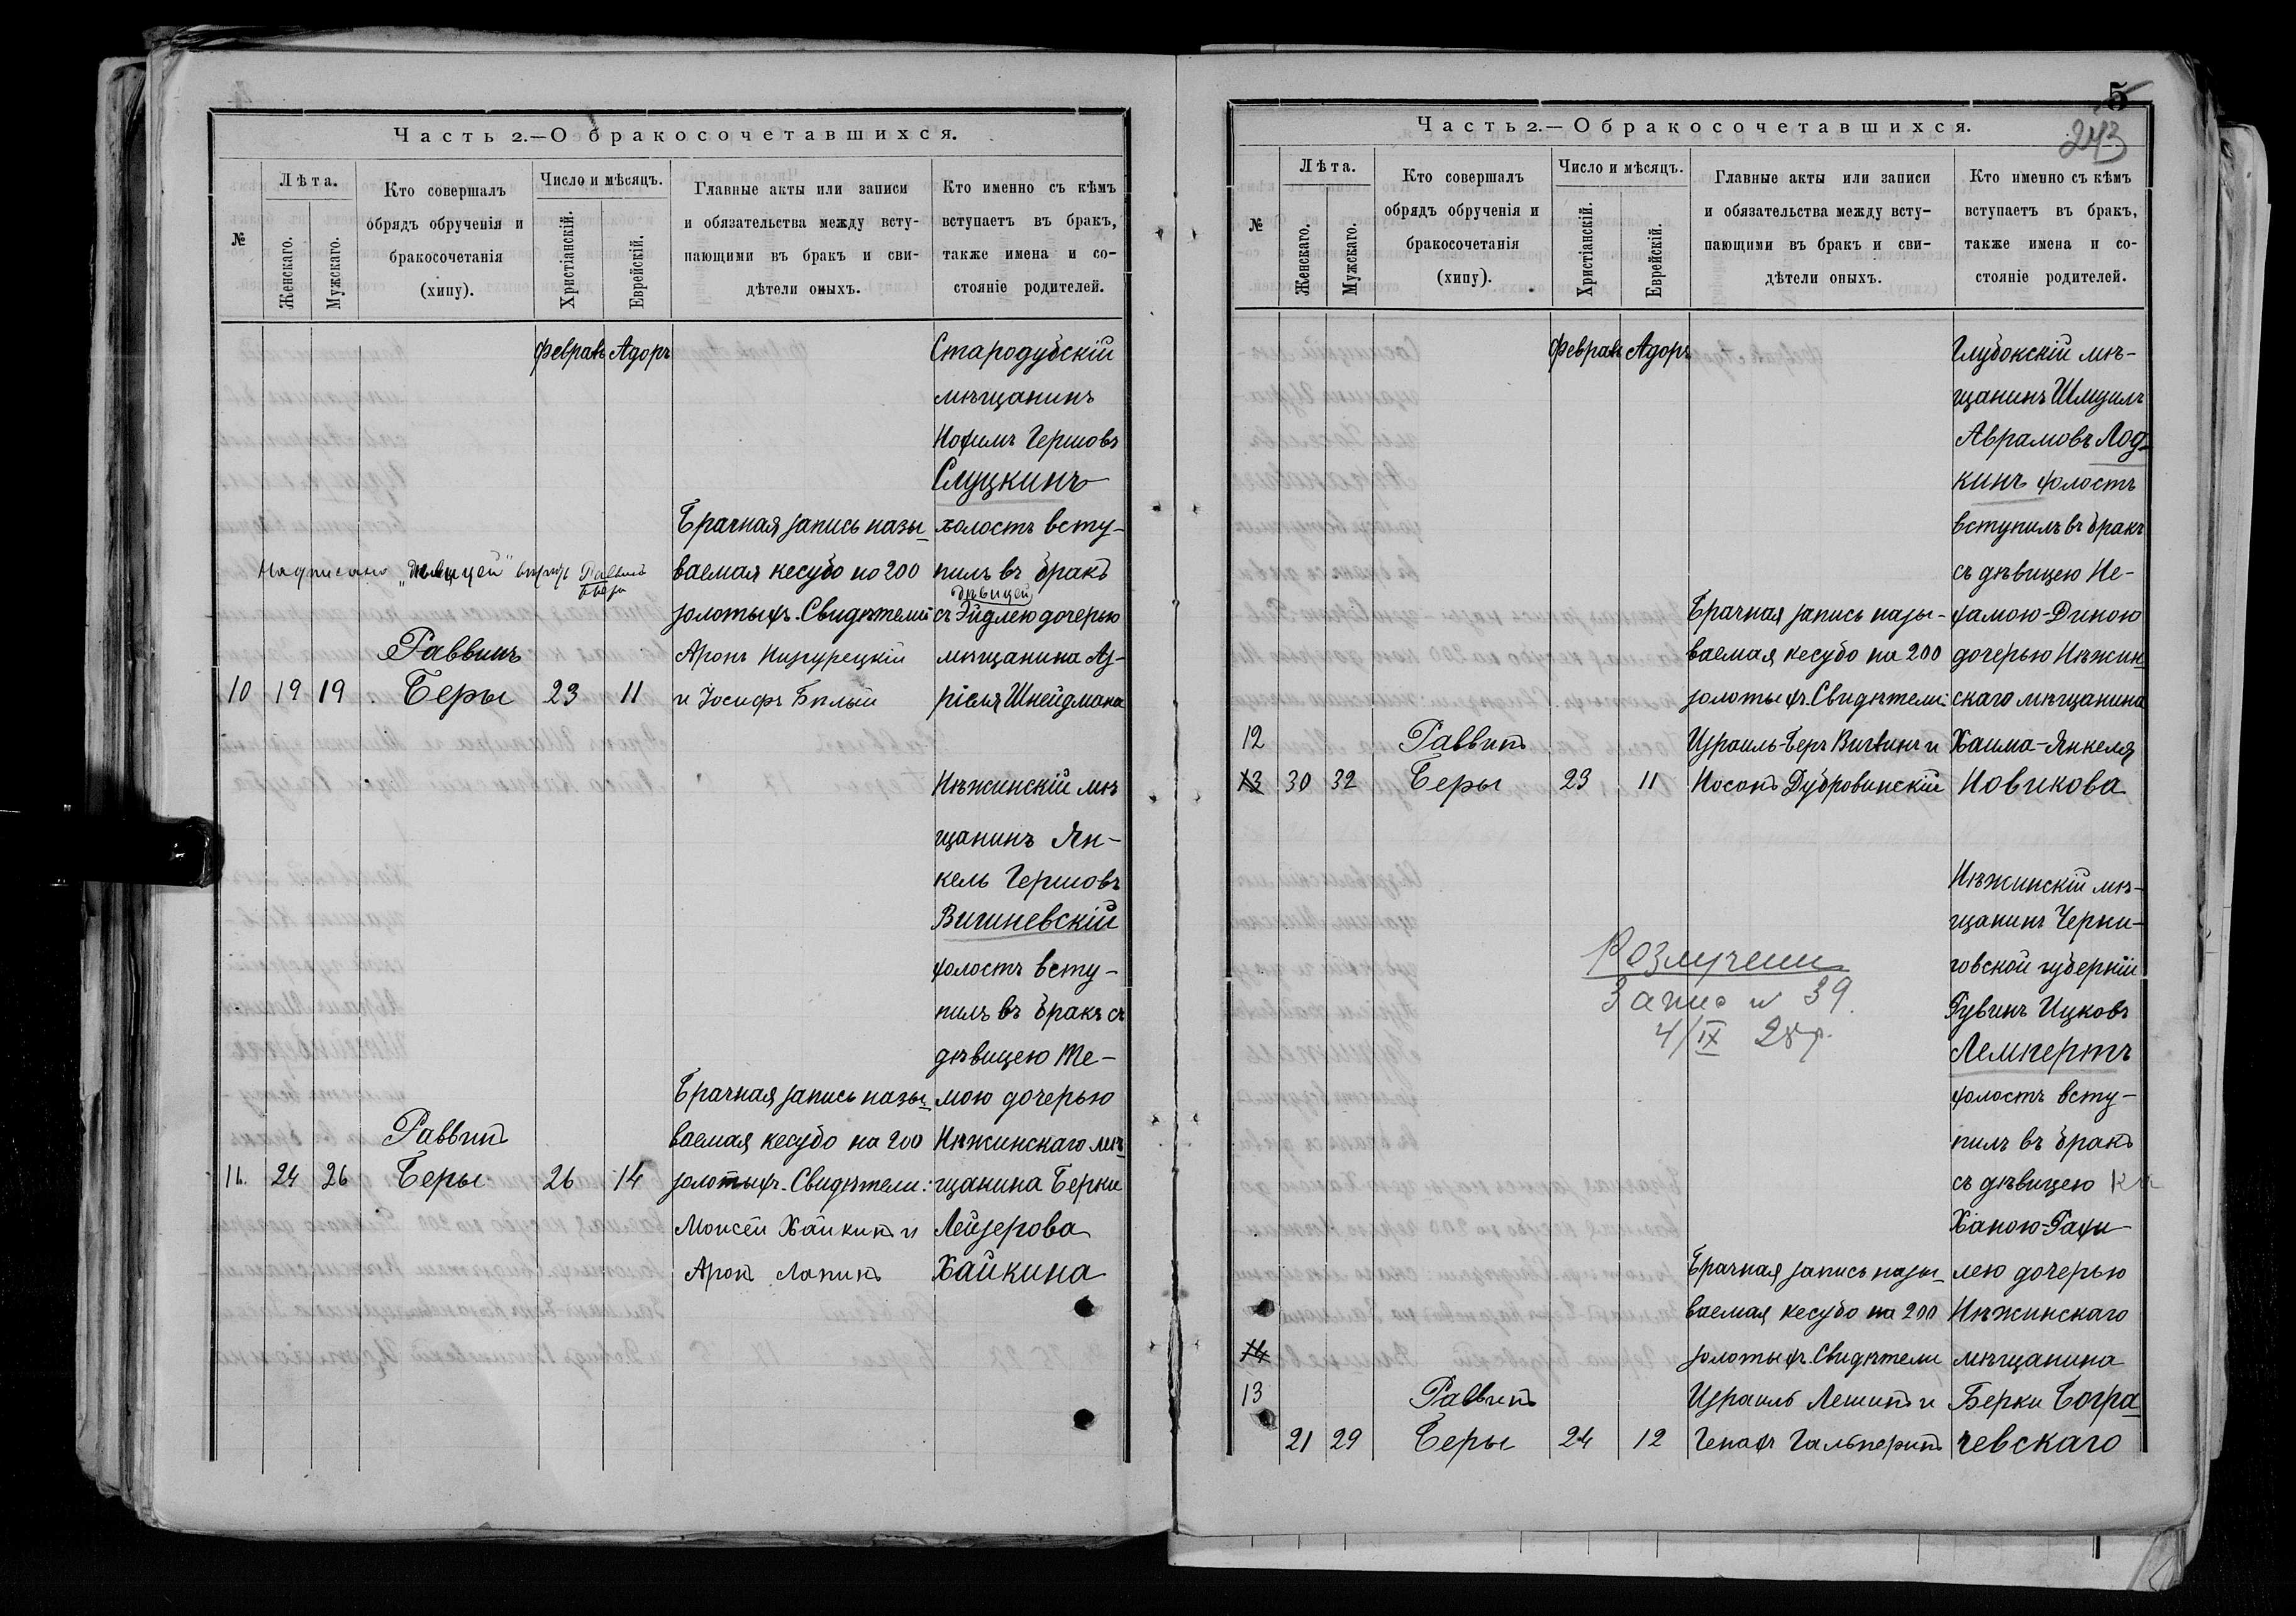 Часть 2.—О бракосочетавшихся.
№
Лѣта.
Женскаго.
Мужскаго.
Кто совершалъ
обрядъ обрученія и
бракосочетанія
(хипу).
Число и мѣсяцъ.
Христіанскій.
Еврейскій.
Главные акты или записи
и обязательства между всту-
пающими въ бракъ и сви-
дѣтели оныхъ.
Кто именно съ кѣмъ
вступаетъ въ бракъ,
также имена и со-
стояніе родителей.
Феврав Адоръ
10 19 19
Раввинъ
Беры
23 11
Брачная запись назы-
ваемая кесубо но 200
золотыхъ. Свидѣтели
Аронъ Низгурецкій
и Іосифъ Бѣлый
Стародубскій
мѣщанинъ
Нохимъ Гершовъ
Слуцкинъ
холостъ всту-
пилъ въ бракъ
дѣвицей
съ Эйдлею дочерью
мѣщанина Аз-
ріеля Шнейдмана
Надписано „дѣвицей" Раввинъ
Беры
11. 24 26
Раввинъ
Беры
26 14
Брачная запись назы-
ваемая кесубо на 200
золотыхъ. Свидѣтели:
Моисей Хайкинъ и
Аронъ Лапинъ
Нѣжинскій мѣ
щанинъ Ян-
кель Гершовъ
Вишневскій
холостъ всту-
пилъ въ бракъ съ
дѣвицею Те-
мою дочерью
Нѣжинскаго мѣ-
щанина Берки
Лейзерова
Хайкина
5
243
Часть 2.—О бракосочетавшихся.
№
Лѣта.
Женскаго.
Мужскаго.
Кто совершалъ
обрядъ обрученія и
бракосочетанія
(хипу).
Число и мѣсяцъ.
Христіанскій.
Еврейскій.
Главные акты или записи
и обязательства между всту-
пающими въ бракъ и сви-
дѣтели оныхъ.
Кто именно съ кѣмъ
вступаетъ въ бракъ,
также имена и со-
стояніе родителей.
Феврав Адоръ
12
13 30 32
Раввинъ
Беры
23 11
Брачная запись назы-
ваемая кесубо на 200
золотыхъ. Свидѣтели:
Израиль-Беръ и
Носонъ Дубровинскій
Глубокскій мѣ-
щанинъ Шмуилъ
Аврамовъ Лод-
кинъ холостъ
вступилъ въ бракъ
съ дѣвицею Не-
хамою-Диною
дочерью Нѣжин-
скаго мѣщанина
Хаима-Янкеля
Новикова
14
13
21 29
Раввинъ
Беры
24 12
Розлучени
Запис № 39.
4/IX 28 р.
Брачная запись назы-
ваемая кесубо на 200
золотыхъ. Свидѣтели
Израиль Лешинъ и
Генахъ Гальперинъ
Нѣжинскій мѣ-
щанинъ Черни-
говской губерніи
Рувинъ Ицковъ
Лемпертъ
холостъ всту-
пилъ въ бракъ
съ дѣвицею
Ханою-Рахи-
лею дочерью
Нѣжинскаго
мѣщанина
Берки Богра-
чевскаго